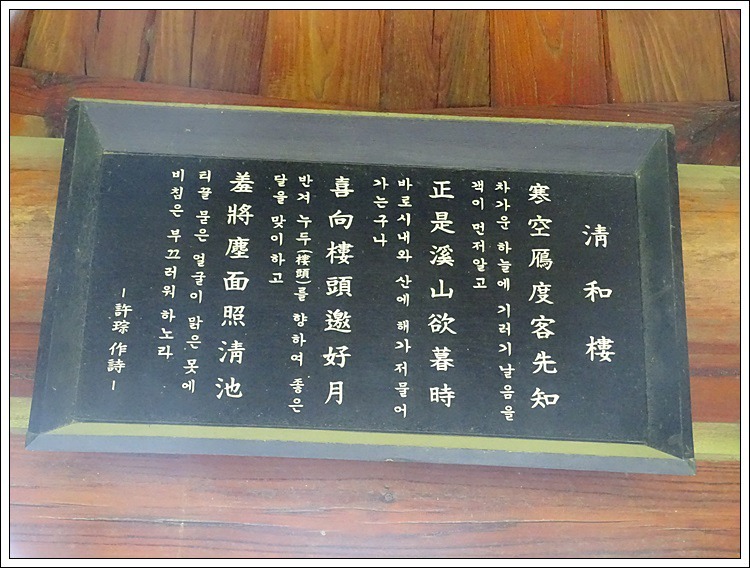 淸和樓
寒空鴈度客先知
차가운 하늘에 기러기날음을
객이 먼저알고
正是溪山欲暮時
바로시내와 산에 해가저물어
가는구나
喜向樓頭邀好月
반겨 누두(樓頭)를 향하여 좋은
달을 맞이하고
羞將塵面照淸池
티끌 묻은 얼굴이 맑은 못에
비침은 부끄러워 하노라
-許琮 作詩-